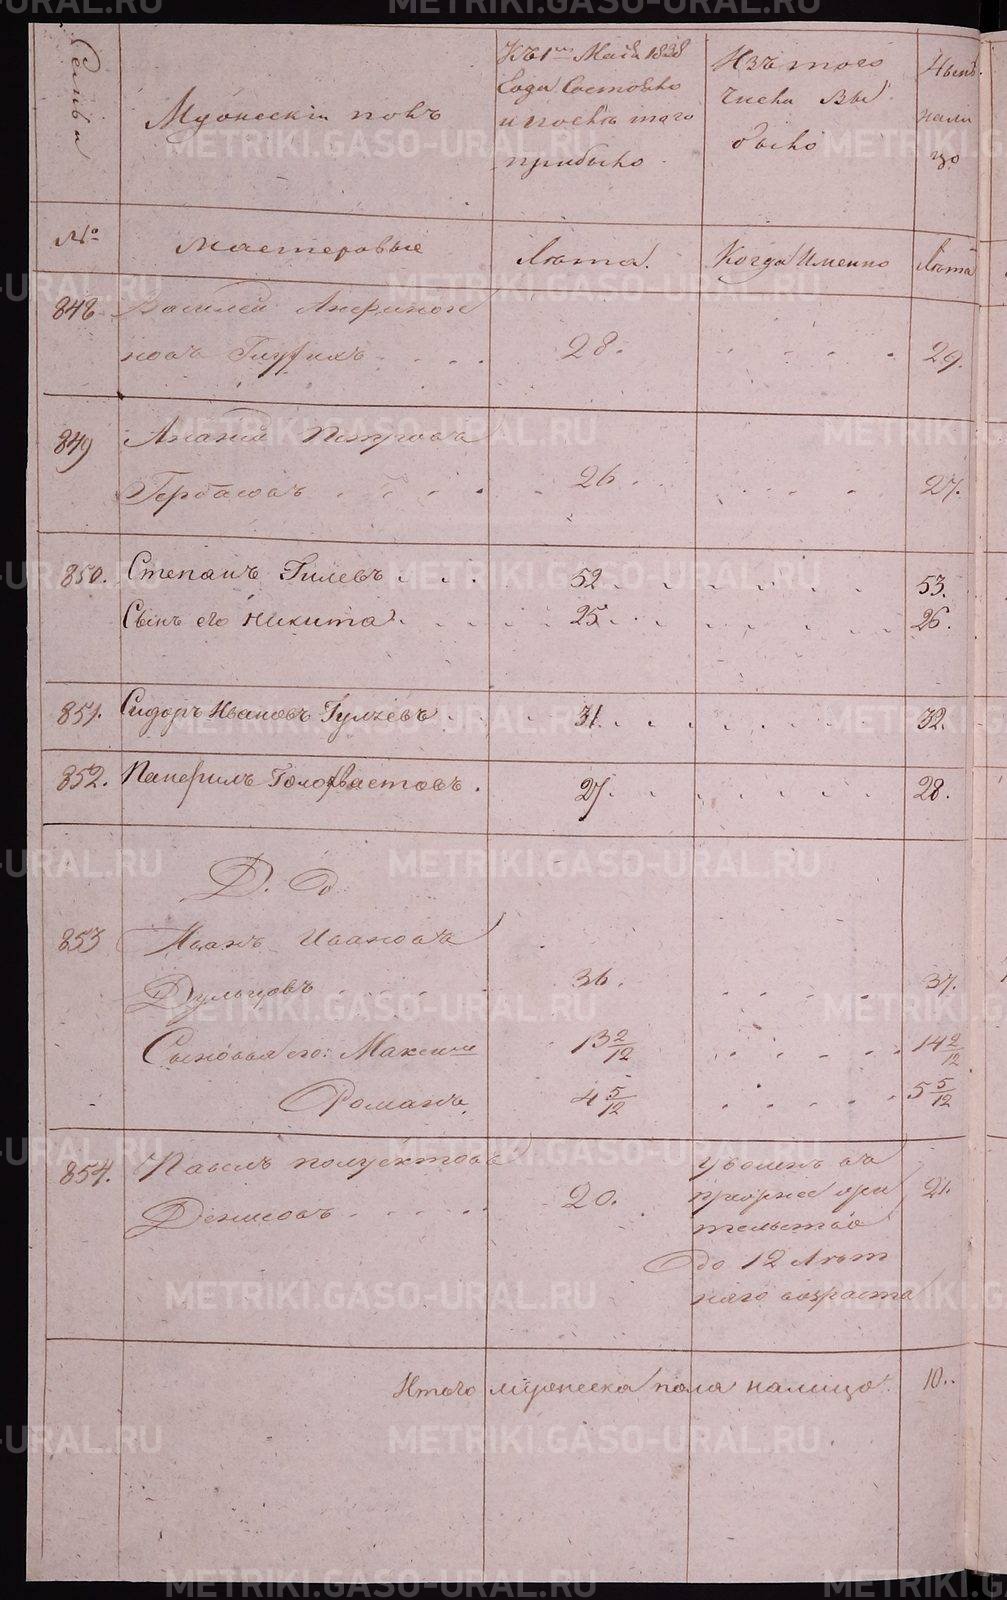 Семьи
Мужескій полъ
Къ 1му Маія 1838
Года Состояло
и послѣ того
прибыло
Изъ того
числа вы
было
Нынѣ
нали
цо
№
мастеровые
Лѣта.
Когда Именно
Лѣта
848 Василей
новъ 28. 29.
849 Ананій Петровъ
26. 27.
850. Степанъ Гилевъ 52 53.
Сынъ его Никита 25. 26.
851. Сидоръ Ивановъ Гулчевъ 31. 32.
852. Панфилъ Голофастовъ. 27. 28.
Д. О
853 Иванъ Ивановъ
Дульцовъ 36. 37.
Сыновья его: Максим 13 2/12 14 2/12
Романъ 4 5/12 5 5/12
854. Павелъ Полуектовъ
Денисовъ 20. 21.
уволенъ въ
до 12 Лѣт
няго возраста
Итого мужеска пола налицо. 10.
METRIKI.GASO-URAL.RU